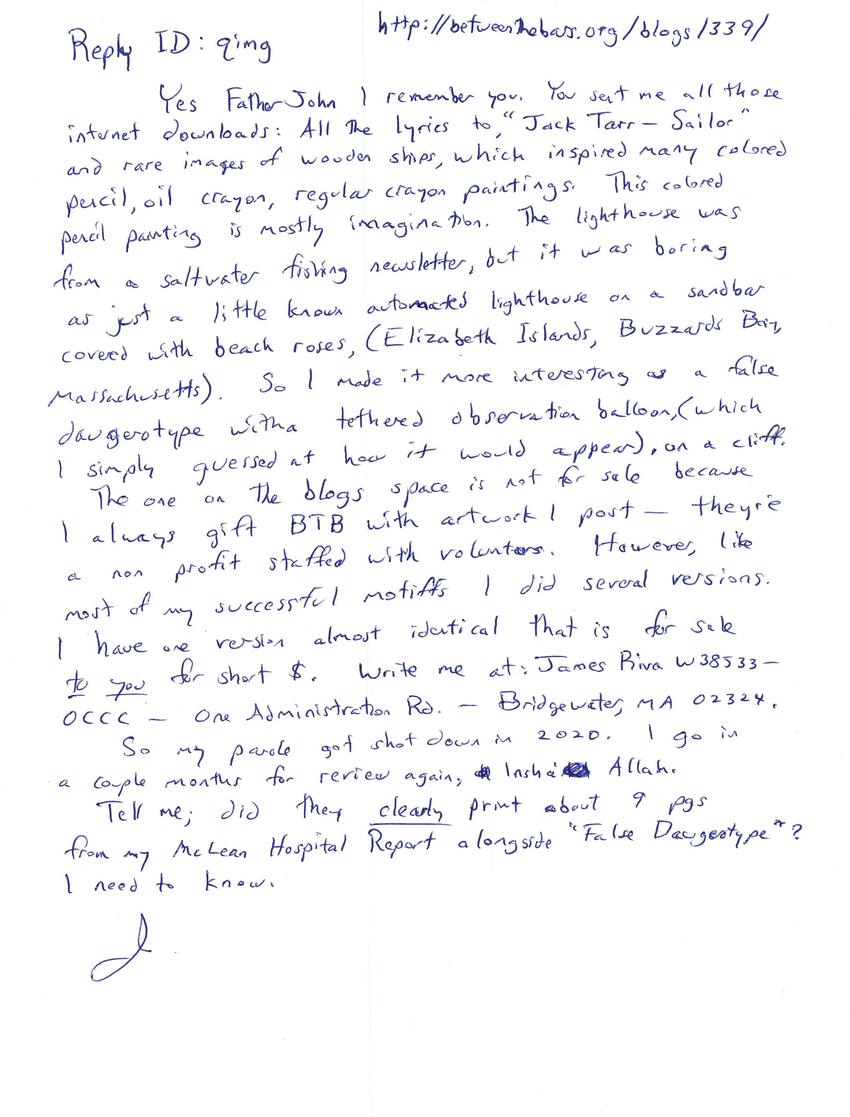 http://betweenthebars.org/blogs/339/
Reply ID: qimg
Yes Father John I remember you. You sent me all those
internet downloads: All the lyrics to, "Jack Tarr – Sailor"
and rare images of wooden ships, which inspired many colored
pencil, oil crayon, regular crayon paintings. This colored
pencil painting is mostly imagination. The lighthouse was
from a saltwater fishing newsletter, but it was boring
as just a little known automated lighthouse on a sandbar
covered with beach roses, (Elizabeth Islands, Buzzards Bay,
Massachusetts). So I made it more interesting as a false
daugerotype with a tethered observation balloon, (which
I simply guessed at how it would appear), on a cliff.
The one on the blogs space is not for sale because
I always gift BTB with artwork I post — they're
a non profit staffed with volunters. However, like
most of my successful motiffs I did several versions.
I have one version almost identical that is for sale
to you for short $. Write me at: James Riva W38533 –
OCCC – One Administration Rd. – Bridgewater, MA 02324.
So my parole got shot down in 2020. I go in
a couple months for review again, Insha Allah.
Tell me; did they clearly print about 9 pgs
from my McLean Hospital Report alongside "False Daugeotype"?
I need to know.
J